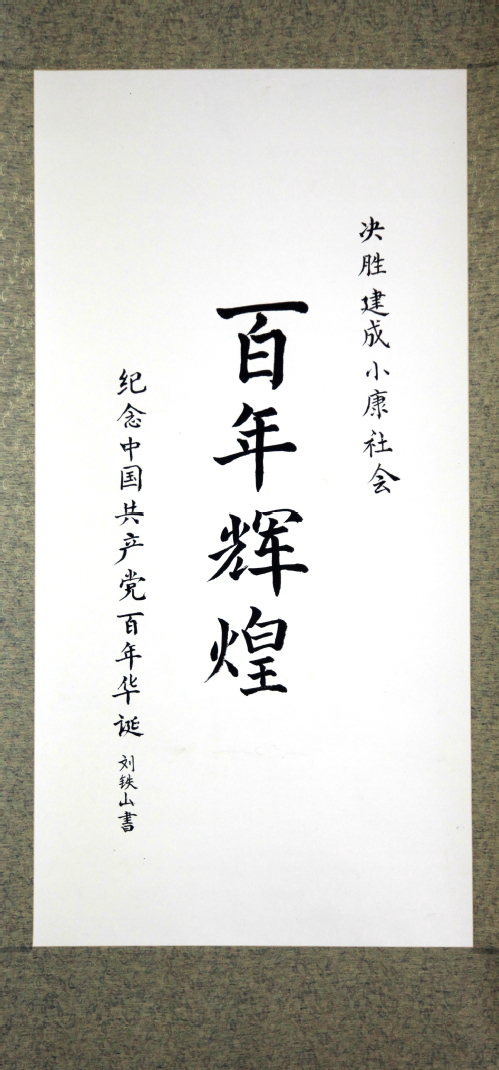 决胜建成小康社会
百年辉煌
纪念中国共产党百年华诞
刘铁山書